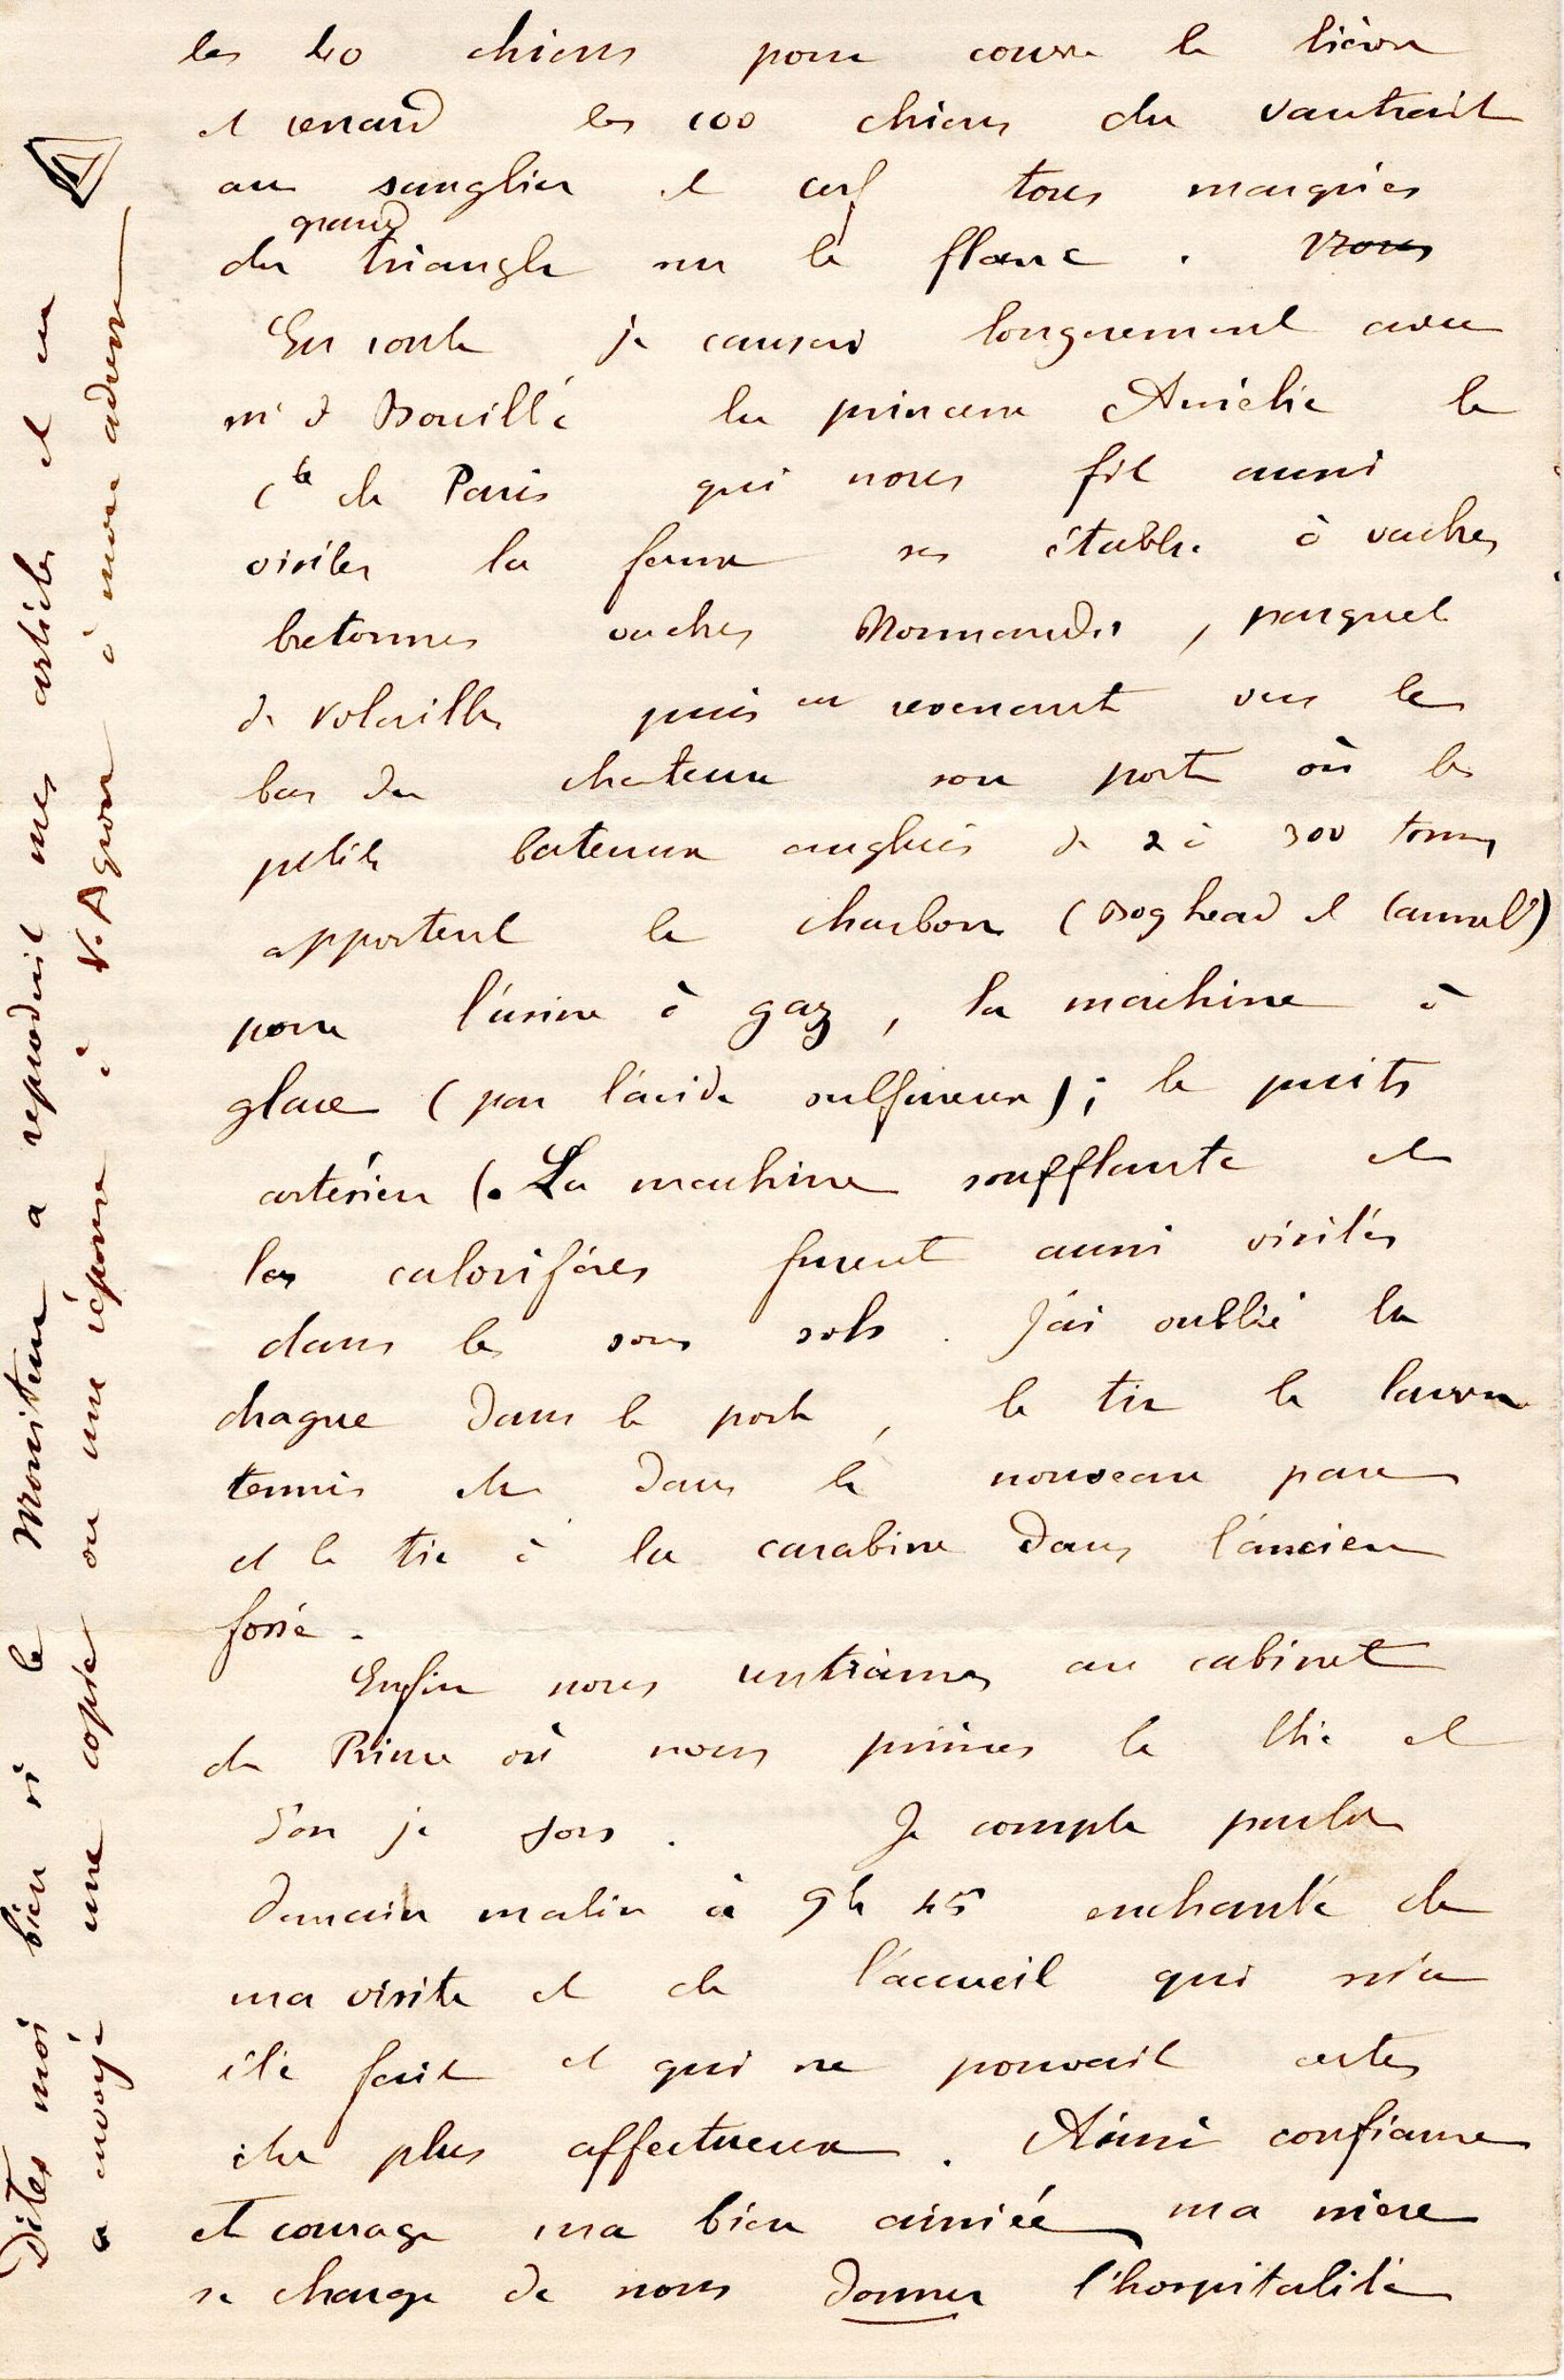 les 40 chiens pour courre le lièvre
et renard les 100 chiens du vautrait
au sanglier et cerf tous marqués
grand
du triangle sur le flanc . Nous
En route je causai longuement avec
mr de Bouillé la princesse Amélie le
Cte de Paris qui nous fit aussi
visiter la ferme ses étables à vaches
bretonnes vaches Normandes , parquet
de volailles puis en revenant vers le
bas du chateau son port où les
petits bateaux anglais de 2 à 300 tonnes
apportent le charbon (Boghead et Cannel)
pour l'usine à gaz , la machine à
glace (par l'acide sulfureux) ; le puits
artésien (. La machine soufflante et
les calorifères furent aussi visités
dans les sous sols . J'ai oublié la
drague dans le port , le tir le lawn
tennis etc dans le nouveau parc
et le tir à la carabine dans l'ancien
fossé .
Enfin nous rentrâmes au cabinet
du Prince où nous primes le thé et
d'ou je sors . Je compte partir
demain matin à 9h 45 enchanté de
ma visite et de l'accueil qui m'a
été fait et qui ne pouvait certes
etre plus affectueux . Ainsi confiance
et courage ma bien aimée ma mère
se charge de nous donner l'hospitalité
Dites moi bien si le Moniteur a reproduit mes articles et en
a envoyé une copie ou une réponse à V. Agron à mon adresse